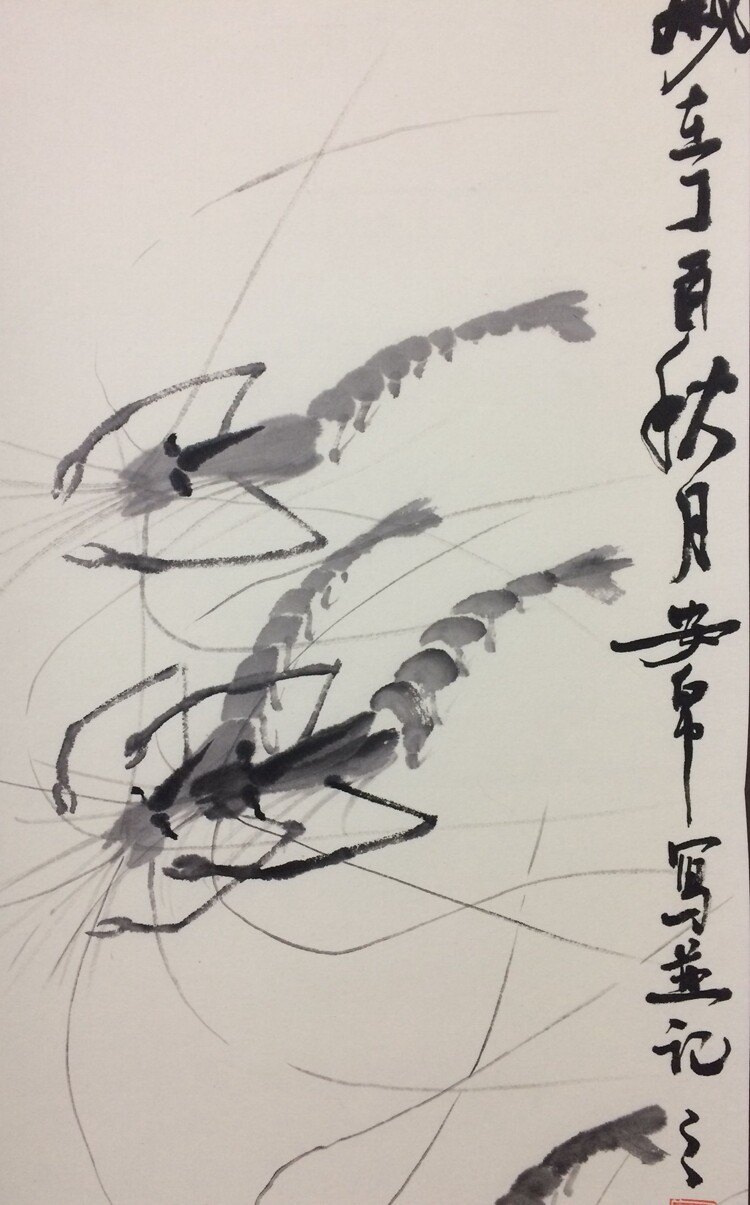 岁在丁酉秋月安帛写並记之